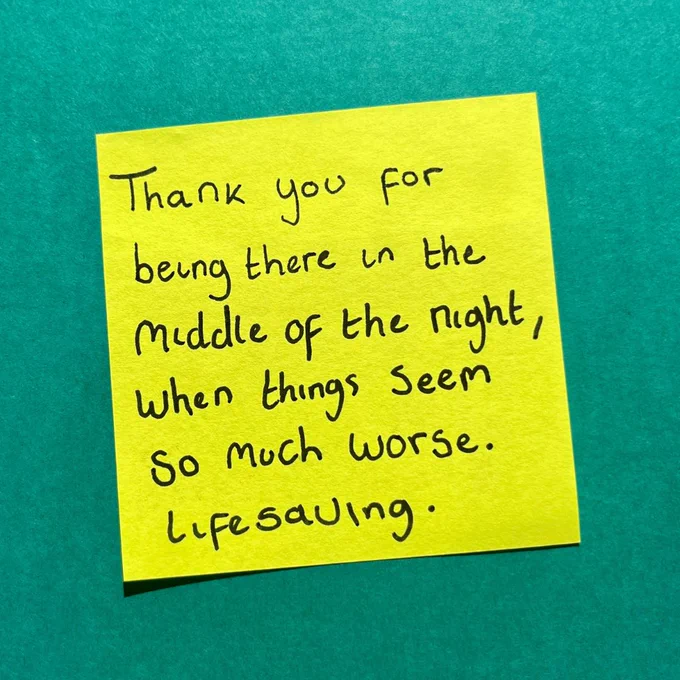 Thank you for
being there in the
middle of the night,
when things seem
so much worse.
Lifesaving.